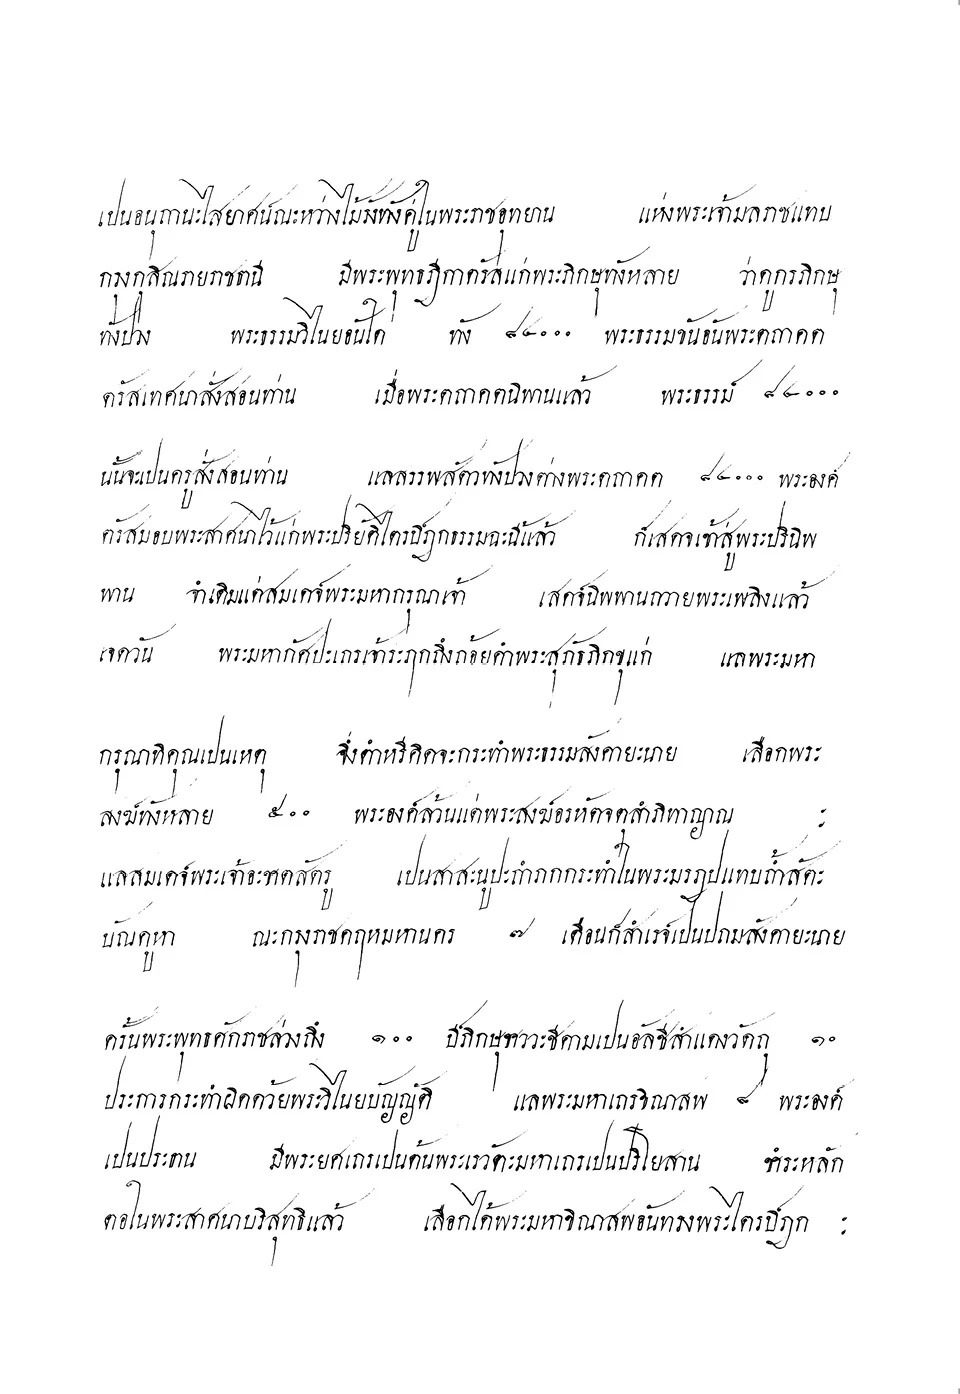 เปนอนุถานะไสยาศน์ณะหว่างไม้รังทังคู่ในพระราชอุทยาน แห่งพระเจ้ามลราชแทบ
กรุงกุสินรายราชธานี มีพระพุทธฎีกาตรัสแก่พระภิกษุทังหลาย ว่าดูกรภิกษุ
ทังปวง พระธรรมวิไนยอันใด ทัง ๘๔๐๐๐ พระธรรมขันธ์อันพระตถาคต
ตรัสเทศนาสั่งสอนท่าน เมื่อพระตถาคตนิพานแล้ว พระธรรม์ ๘๔๐๐๐
นั้นจะเปนครูสั่งสอนท่าน แลสรรพสัตวทังปวงต่างพระตถาคต ๘๔๐๐๐ พระองค์
ตรัสมอบพระสาศนาไว้แก่พระปริยัติไตรปิฎกธรรมฉะนี้แล้ว ก็เสดจเข้าสู่พระปรินิพ
พาน จำเดิมแต่สมเดจ์พระมหากรุณาเจ้า เสดจ์นิพพานถวายพระเพลิงแล้ว
เจดวัน พระมหากัศปะเถรเจ้าระฦกถึงถ้อยคำพระสุภัธภิกขุแก่ แลพระมหา
กรุณาทิคุณเปนเหตุ จึ่งดำหรีคิดจะกระทำพระธรรมสังคายะนาย เลือกพระ
สงฆ์ทังหลาย ๕๐๐ พระองค์ล้วนแต่พระสงฆ์อรหัตจตุสำภิทาญาณ ฯ
แลสมเดจ์พระเจ้าอะชาตสัตรู เปนสาสะนูปะถำภกกระทำในพระมรฎปแทบถ้ำสัตะ
บัณคูหา ณะกรุงราชคฤหมหานคร ๗ เดือนก็สำเรจ์เปนปถมสังคายะนาย
ครั้นพระพุทธศักราชล่วงถึง ๑๐๐ ปีภิกษุชาววะชีคามเปนอัลชีสำแดงวัตถุ ๑๐
ประการกระทำผิดด้วยพระวิไนยบัญญัติ แลพระมหาเถรขิณาสพ ๘ พระองค์
เปนประธาน มีพระยศเถรเปนต้นพระเรวัตะมหาเถรเปนปริโยสาน ชำระหลัก
ตอในพระสาศนาบริสุทธิแล้ว เลือกได้พระมหาขิณาสพอันทรงพระไตรปิฎก ฯ